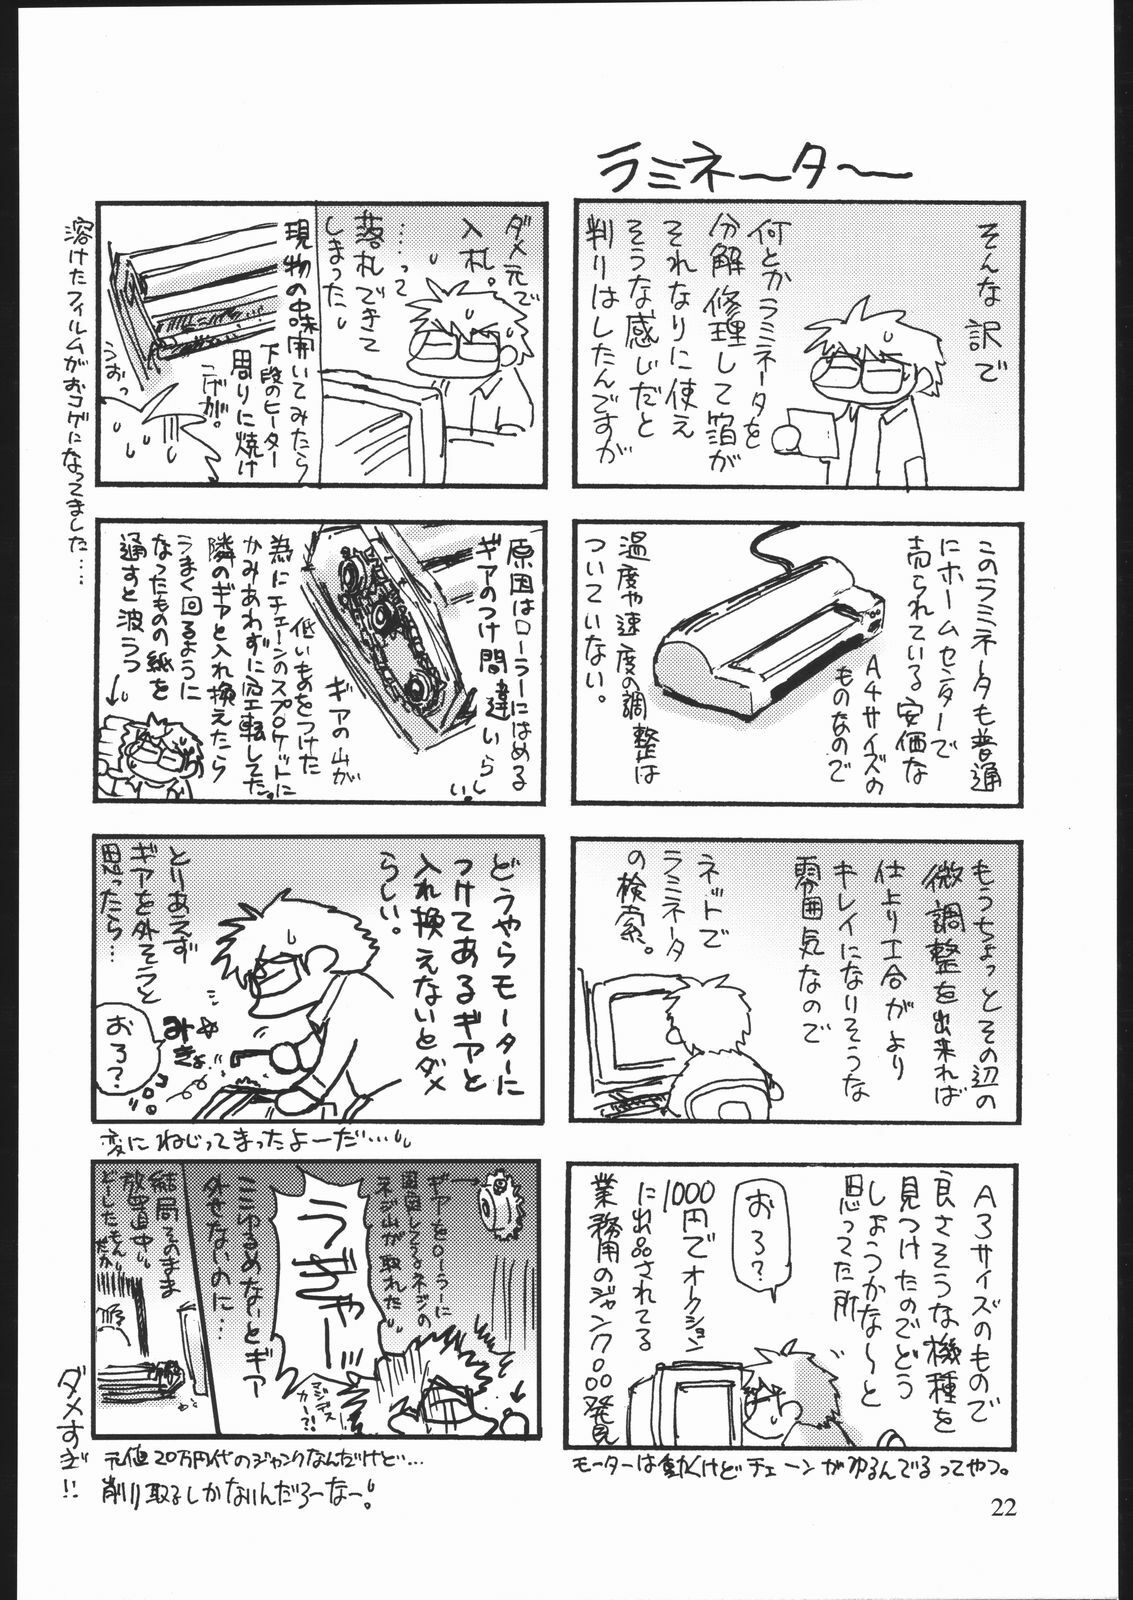 ラミネーター
そんな訳で
何とかラミネータを
分解修理して箔が
それなりに使え
そうな感じだと
判りはしたんですが
このラミネータも普通
にホームセンターで
売られている安価な
A4サイズの
ものなので
温度や速度の調整は
ついていない。
もうちょっとその辺の
微調整を出来れば
仕上り工合がより
キレイになりそうな
雰囲気なので
ネットで
ラミネータ
の検索。
A3サイズのもので
良さそうな機種を
見つけたのでどう
しようかな〜と
思ってた所
おろ?
1000円でオークション
に出品されてる
業務用のジャンク品発見
モーターは動くけどチェーンがゆるんでるってやつ。
ダメ元で
入札。
……って
落札できて
しまった。
現物の中味開いてみたら
下段のヒーター
周りに焼け
こげが。
うおっ
溶けたフィルムがおコゲになってました……
原因はローラーにはめる
ギアのつけ間違いらしい。
ギアの山が
低いものをつけた
為にチェーンのスプロケットに
かみあわずに空転してた。
隣のギアと入れ換えたら
うまく回るように
なったものの紙を
通すと波うつ
どうやらモーターに
つけてあるギアと
入れ換えないとダメ
らしい。
とりあえず
ギアを外そうと
思ったら…
みきょ
おろ?
変にねじってまったよーだ…
ギアをローラーに
固定してるネジの
ネジ山が取れた
うぎゃー
マジデスカー?!
ここゆるめないとギア
外せないのに…
結局そのまま
放置中。
どーしたもんだか
元値20万円代のジャンクなんだけど…
削り取るしかないんだろーなー。
ダメすぎ!!
22